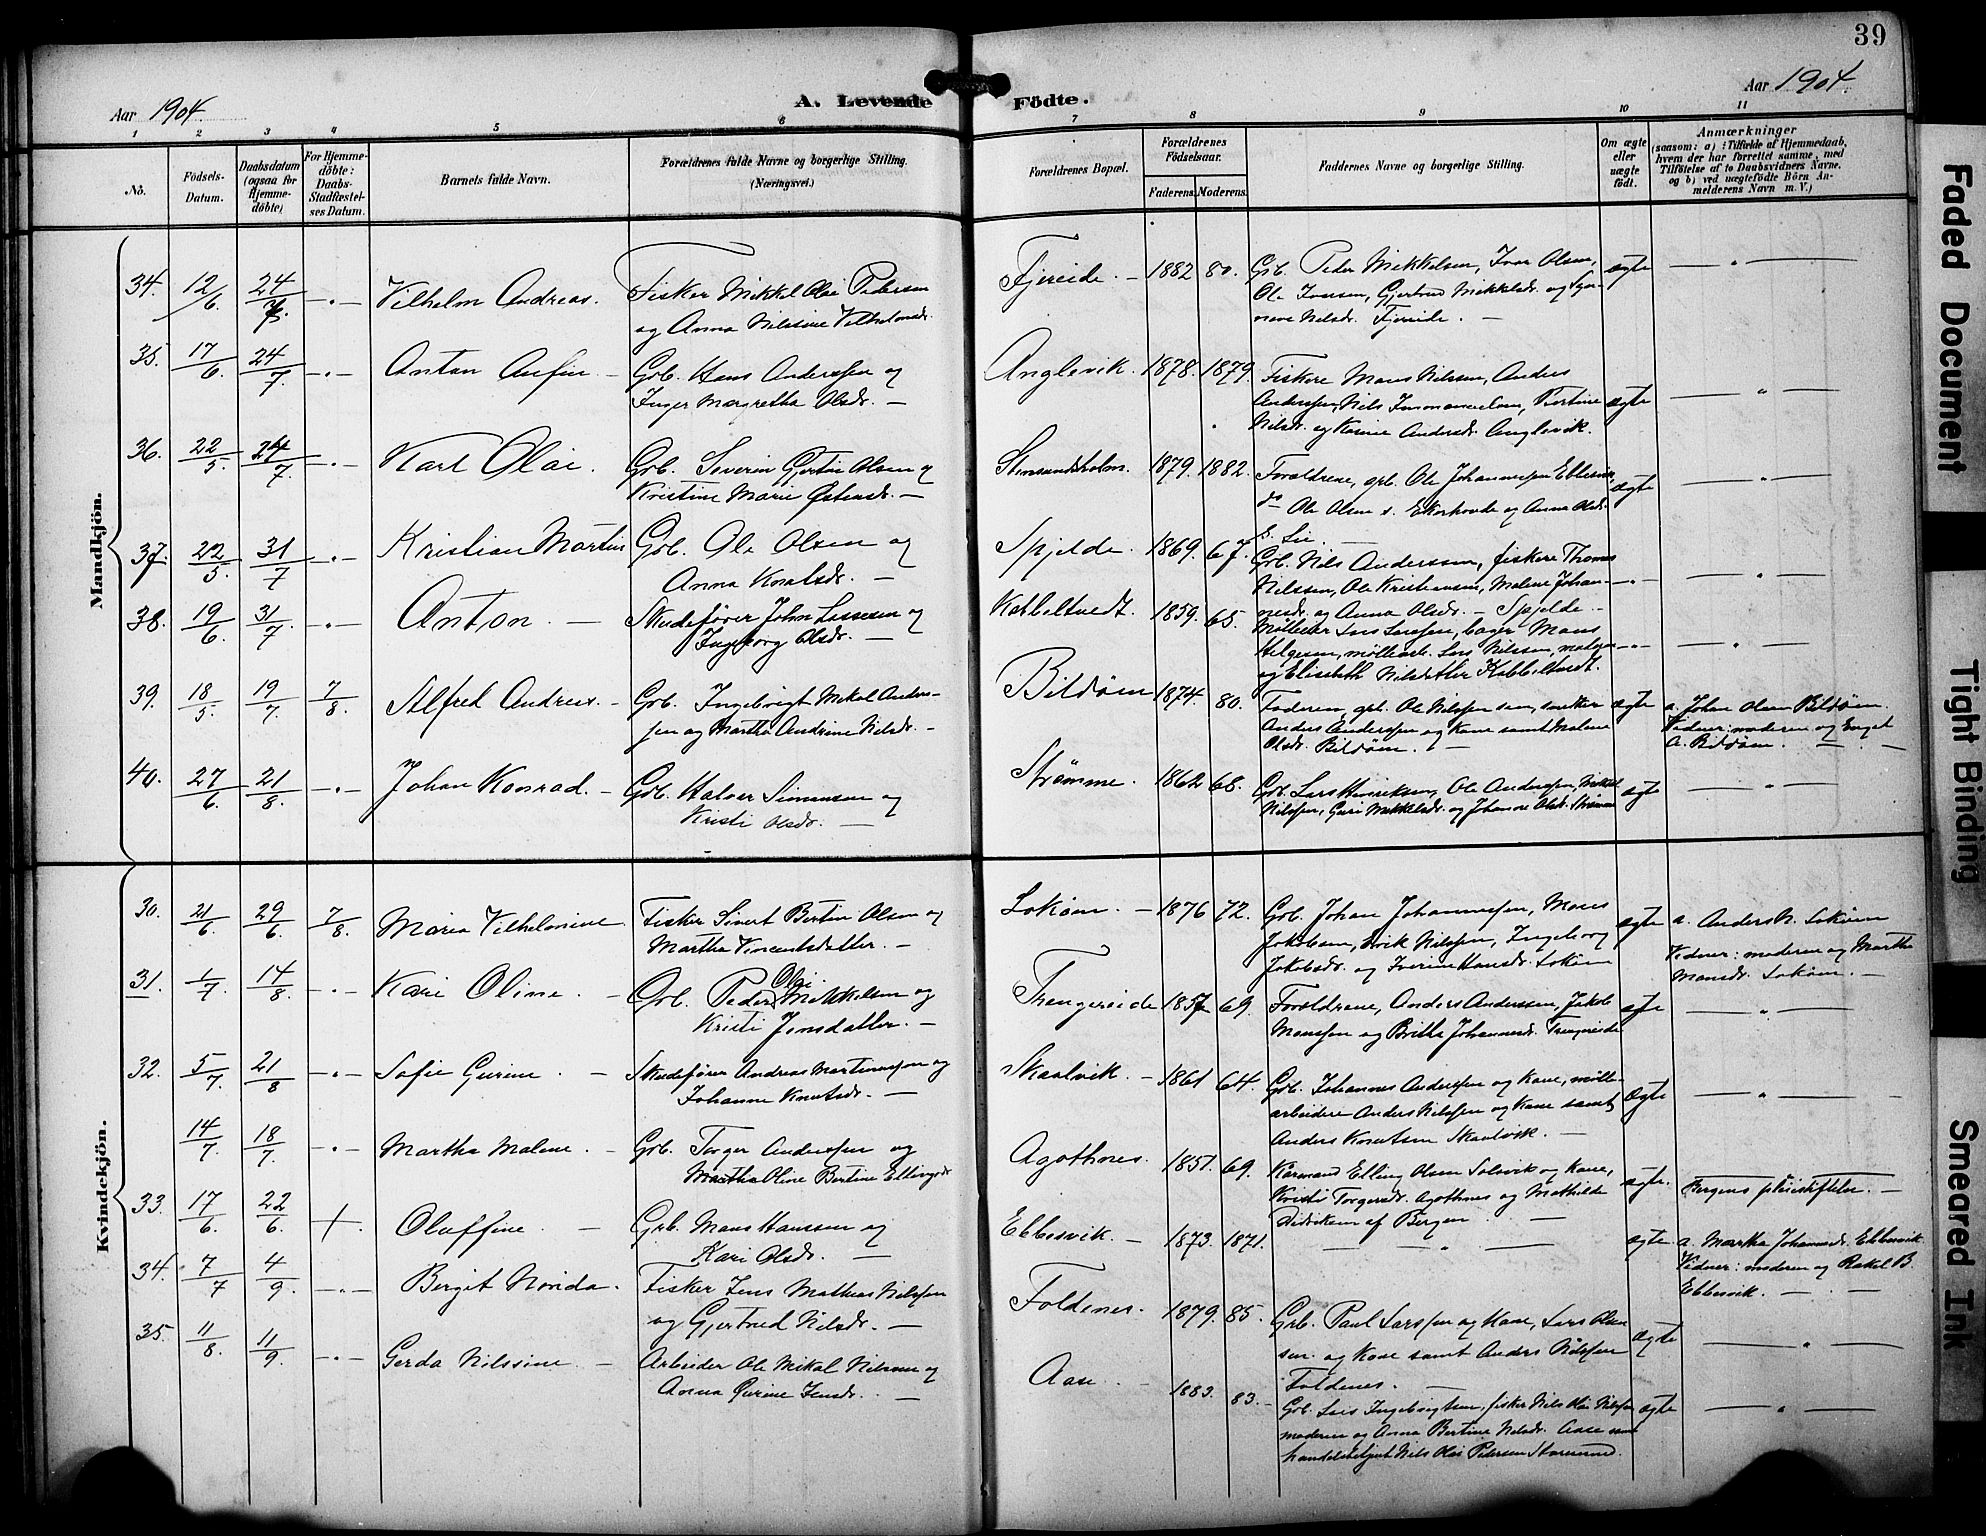 39
Aar 1904.
A. Levende Födte.
Aar 1904.
1 2 3 4 5 6 7 8 9 10 11
No.
Födsels-
Datum.
Daabsdatum
(ogsaa for
Hjemme-
döbte)
For Hjemme-
döbte:
Daabs-
Stadfæstel-
ses Datum.
Barnets fulde Navn.
Forældrenes fulde Navne og borgerlige Stilling.
(Næringsvei.)
Forældrenes Bopæl.
Forældrenes
Födselsaar.
Faderens. Moderens.
Faddernes Navne og borgerlige Stilling.
Om ægte
eller
uægte
födt.
Anmærkninger
(saasom: a) i Tilfælde af Hjemmedaab,
hvem der har forrettet samme, med
Tilföielse af to Daabsvidners Navne,
og b) ved uægtefödte Börn An-
melderens Navn m. V.)
Mandkjön.
34. 12/6. 24/7. -"- Vilhelm Andreas.
Fisker Mikkel Olai Pedersen
og Anna Nilssine Vilhelmsdr.
Fjereide. - 1882 80.
Grb. Peder Mikkelsen, Ivar Olsen,
Ole Iversen, Gjertrud Mikkelsdr. og Syn-
neve Nilsdr. Fjereide. -
ægte - " -
35. 17/6. 24/7. -"- Anton Anfin -
Grb. Hans Anderssen og
Inger Margretha Olsdr. -
Anglevik. 1878. 1879.
Fiskere Mons Nilssen, Anders
Anderssen, Nils Immanuelsen, Bertine
Nilsdr. og Karine Andersdr. Anglevik.
ægte - " -
36. 22/5. 24/7. -"- Karl Olai.
Grb. Severin Gjertin Olsen og
Kristine Marie Østensdr. -
1879. 1882.
Forældrene, grb. Ole Johannessen Ebbesvik,
do Ole Olsen s. Ekerhovde og Anna Olsdr.
s. Lie. -
ægte - " -
37. 22/5. 31/7 -"- Kristian Martin
Grb. Ole Olsen og
Anna Knutsdr. -
Spjelde. 1869. 67.
Grb. Nils Anderssen, fiskere Thomas
Nilssen, Ole Kristiansen, Malene Johan-
nesdr. og Anna Olsdr. - Spjelde. -
-"- - " -
38. 19/6. 31/7. -"- Anton. -
Skudefører John Lassesen og
Ingborg Olsdr. -
Kobbeltvedt. 1859. 65.
Møllearb. Lars Larssen, bager Mons
Helgesen, møllearb. Lars Nilssen,
og Elisabeth Nilsdatter Kobbeltvedt.
-"- - " -
39. 18/5. 19/7. 7/8. Alfred Andreas. -
Grb. Ingebrigt Mikal Anders-
sen og Martha Andrine Nilsdr. -
Bildøen 1874. 80.
Faderen, grb. Ole Nilssen sen, snedker
Anders Anderssen og Kone samt Malene
Olsdr. Bildøen. -
ægte
a. Johan Olsen Bildøen.
Vidner: moderen og Enget
A. Bildøen. -
40. 27/6. 21/8. -"- Johan Konrad. -
Grb. Halvor Simonsen og
Kristi Olsdr. -
Strømme. 1862 68.
Grb. Lars Henriksen, Ole Anderssen, Mikkel
Nilssen, Guri Mikkelsdr. og Johanne Olsdr. Strømme
ægte - " -
Kvindekjön.
30. 21/6. 29/6. 7/8. Maria Vilhelmine
Fisker Sivert Bertin Olsen og
Martha Vincentsdatter. -
Lokøen. - 1876 72.
Grb. Johan Johannessen, Mons
Jakobsen, Erik Nilssen, Ingeborg
Jakobsdr. og Iverine Hansdr. Lokøen
ægte
a. Anders N. Lokøen
Vidner: moderen og Martha
Monsdr. Lokøen. -
31. 1/7. 14/8. -"- Kari Oline. -
Grb. Peder Olai Mikkelsen og
Kristi Jensdatter. -
Trengereide 1857 69.
Forældrene, Anders Anderssen, Jakob
Monssen og Britha Johannesdr. Trengereide
ægte - " -
32. 5/7. 21/8 -"- Sofie Gurine. -
Skudefører Andreas Martinussen og
Johanne Knutsdr. -
Skaalvik. - 1861 64.
Grb. Johannes Anderssen og Kone, mølle-
arbeidere Anders Nilssen og Kone samt
Anders Knutsen Skaalvik. -
ægte - " -
14/7. 18/7. -"- Martha Malene. -
Grb. Torger Anderssen og
Martha Oline Bertine Ellingsdr.
Agothnes. 1851. 69.
Kørmand Elling Olsen Solsvik og Kone,
Kristi Torgersdr. Agothnes og Mathilde
Didriksen af Bergen. -
ægte. Bergens pleiestiftelse. -
33. 17/6. 22/6. + Oluffine -
Grb. Mons Hanssen og
Kari Olsdr. -
Ebbesvik. - 1873. 1871.
- " -
ægte
a. Martha Johannesdr. Ebbesvik.
Vidner: moderen og Rakel B.
Ebbesvik. -
34. 7/7 4/9. -"- Bergit Novida.
Fisker Jens Mathias Nilssen
og Gjertrud Nilsdr. -
Foldenes. 1879. 85.
Grb. Paul Larssen og Kone, Lars Olai
sen. og Kone samt Anders Nilssen
Foldenes. -
ægte - " -
35. 11/8. 11/9. -"- Gerda Nilssine. -
Arbeider Ole Mikal Nilssen og
Anna Gurine Jensdr. -
Aase - 1883. 83. -
Grb. Lars Ingebrigtsen, fisker Nils Olai Nilssen
moderen og Anna Bertine Nilsdr. Aase samt
handelsbetjent Nils Olai Pedersen
ægte - " -
Faded Document
Tight Binding
Smeared Ink